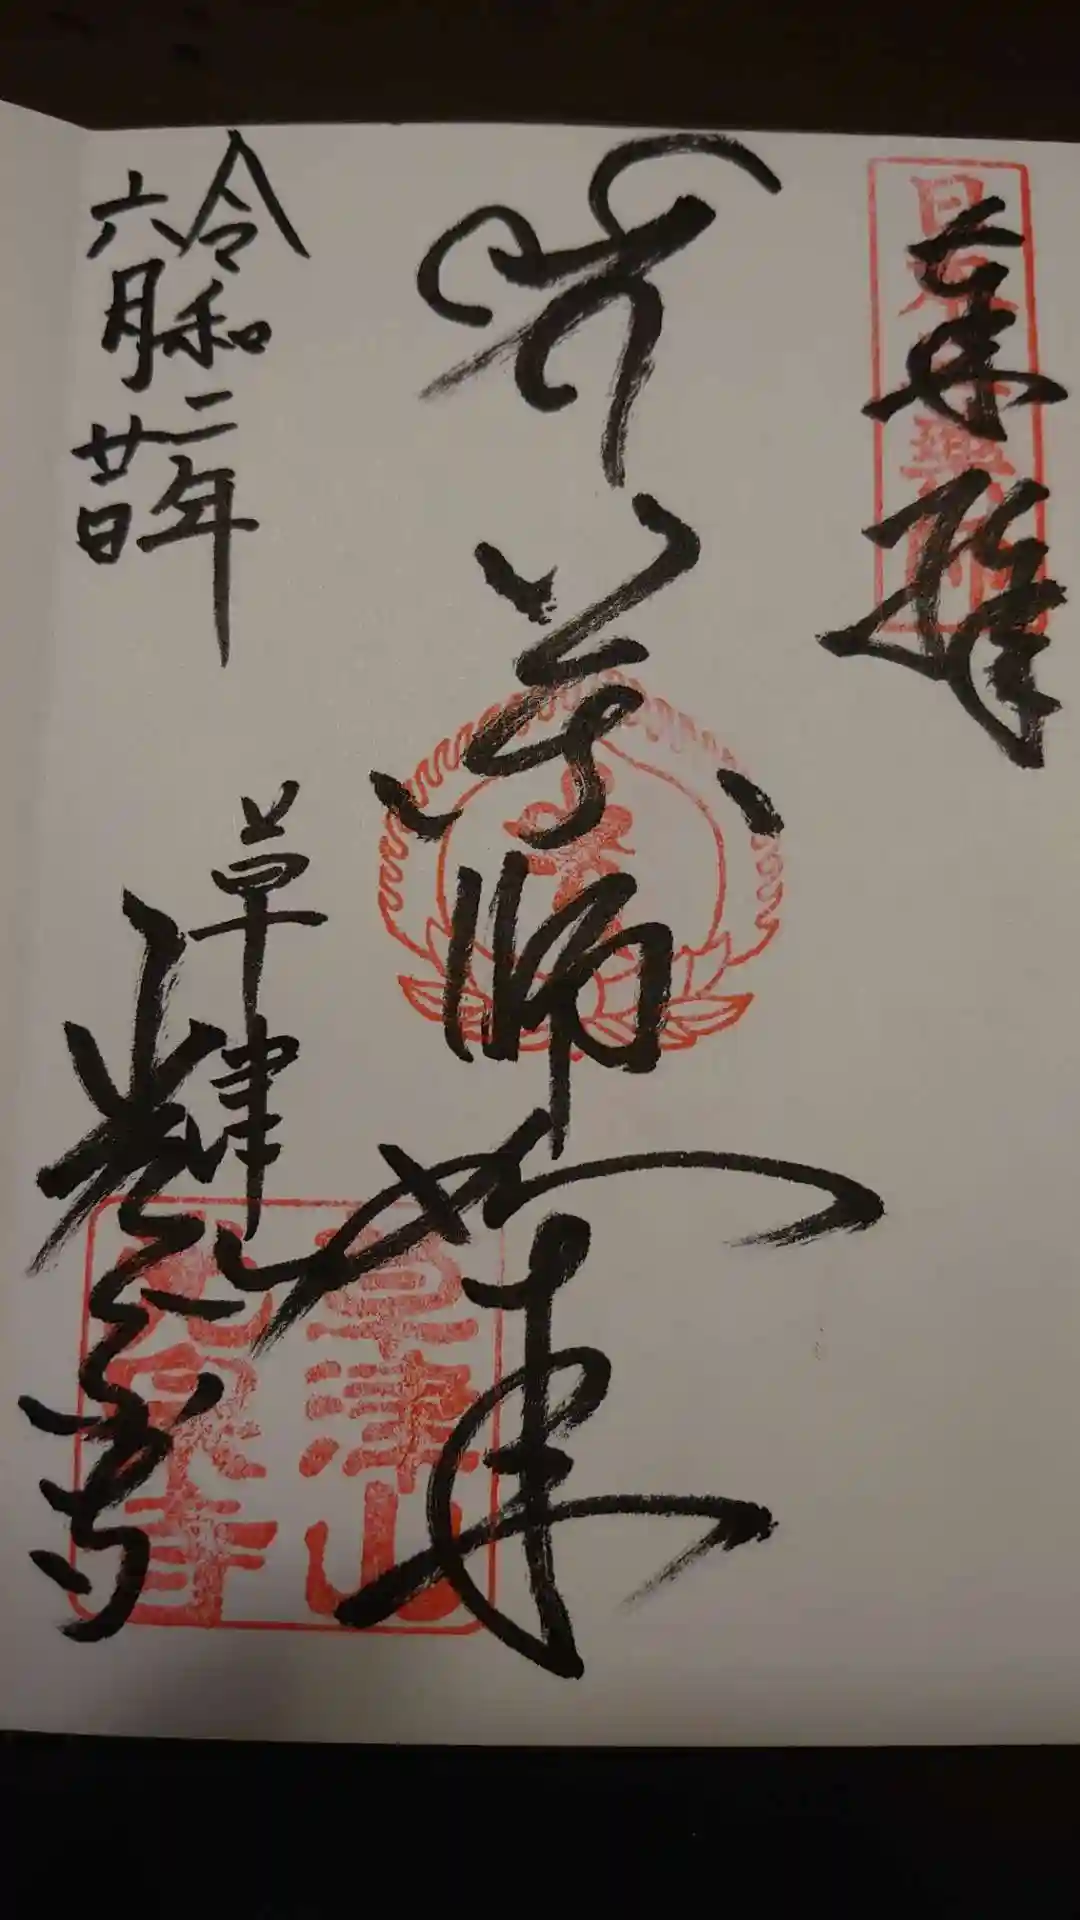 奉拝
薬師如来
令和二年
六月廿日
草津
光泉寺
草津山
光泉寺